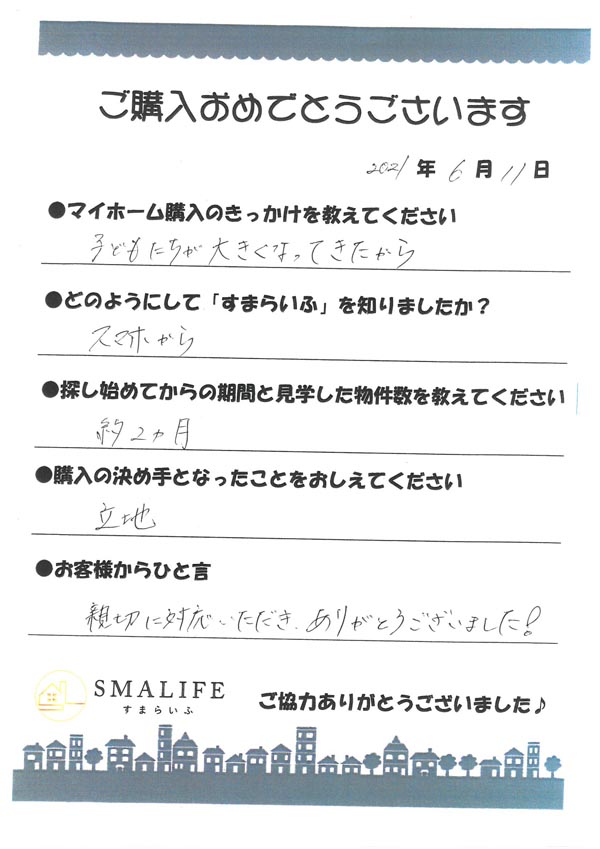 ご購入おめでとうございます
2021年6月11日
●マイホーム購入のきっかけを教えてください
子どもたちが大きくなってきたから
●どのようにして「すまらいふ」を知りましたか？
スマホから
●探し始めてからの期間と見学した物件数を教えてください
約2ヵ月
●購入の決め手となったことをおしえてください
立地
●お客様からひと言
親切に対応いただき、ありがとうございました！
SMALIFE
すまらいふ
ご協力ありがとうございました♪